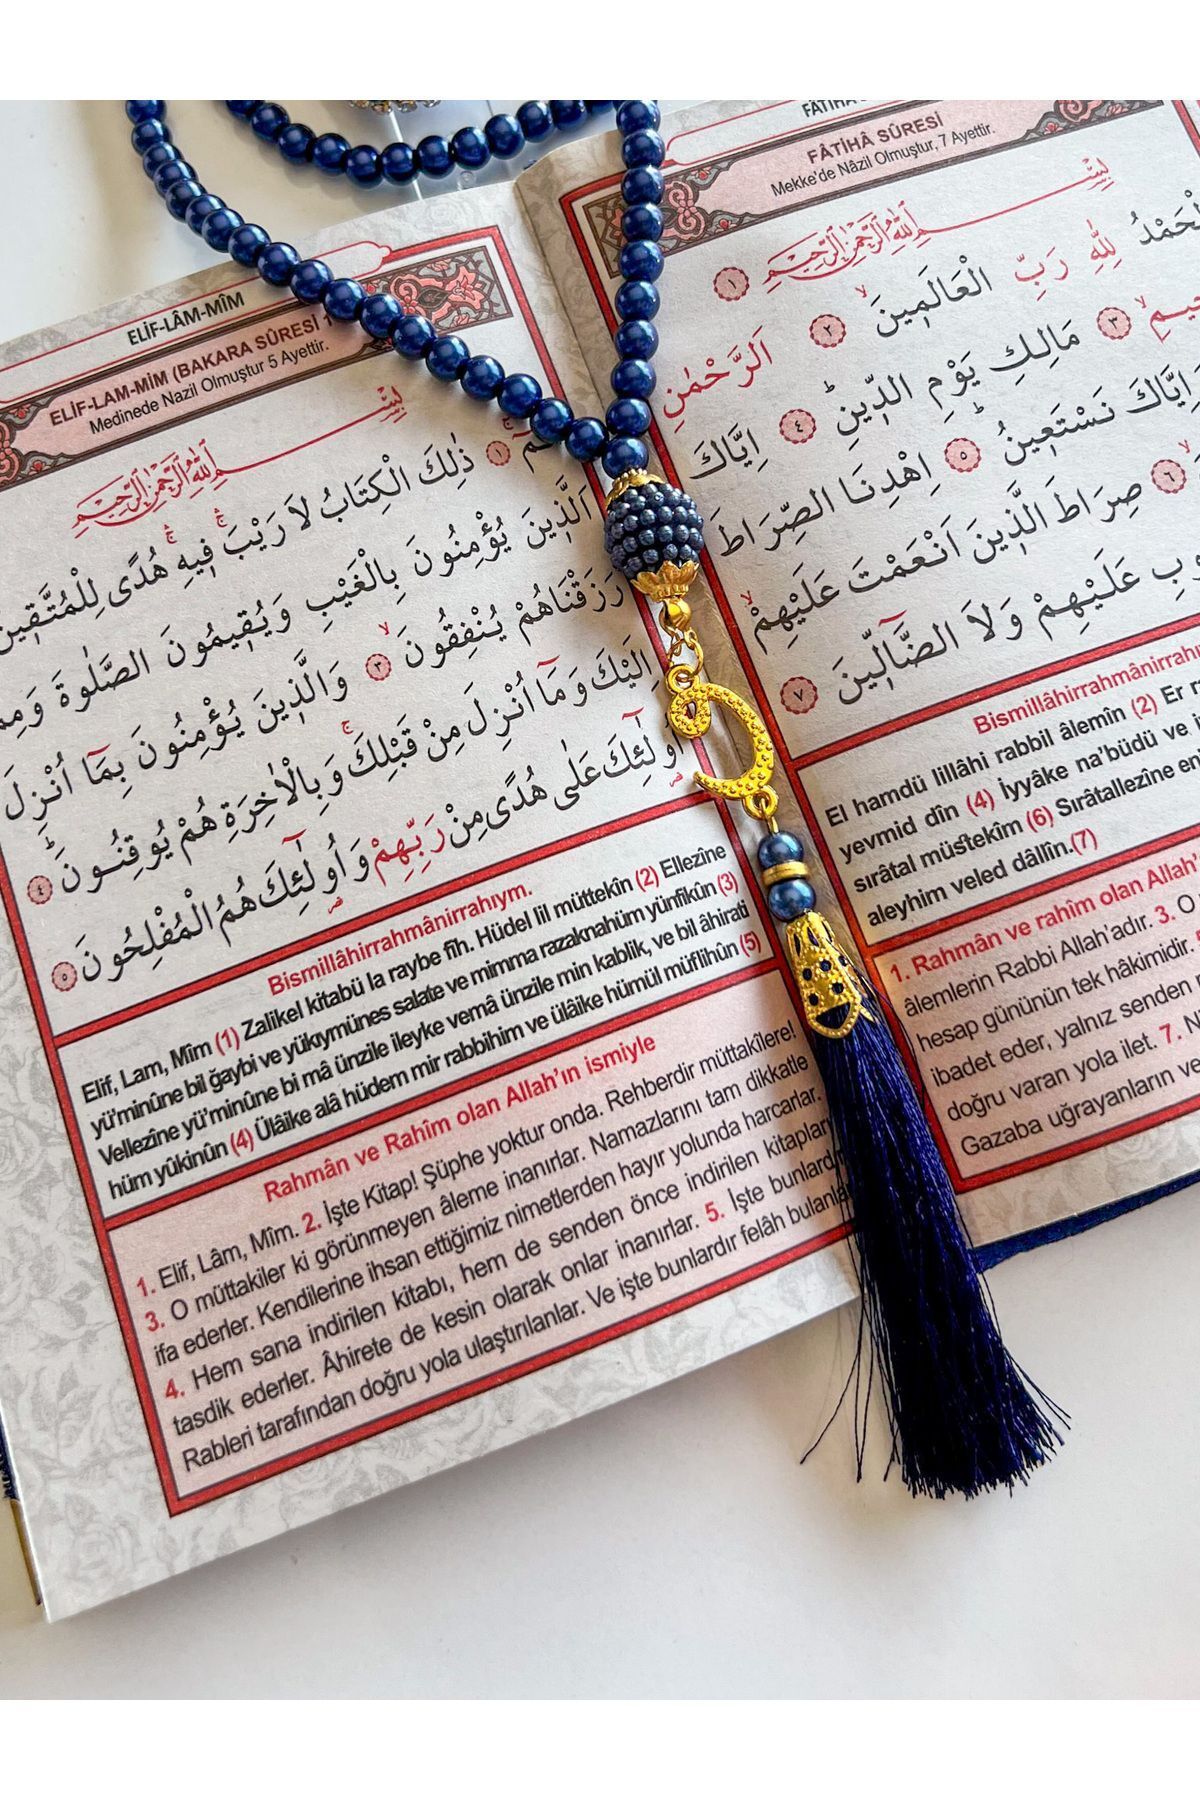 FÂTİHA SÛRESİ
Mekke'de Nâzil Olmuştur, 7 Ayettir.
بِسْــمِ اللّٰهِ الرَّحْمٰنِ الرَّحِيمِ ١
لْحَمْدُ لِلّٰهِ رَبِّ الْعَالَمِينَ ٢ اَلرَّحْمٰنِ
حِيمِ ٣ مَالِكِ يَوْمِ الدِّينِ ٤ اِيَّاكَ
وَاِيَّاكَ نَسْتَعِينُ ٥ اِهْدِنَا الصِّرَاطَ
٦ صِرَاطَ الَّذِينَ اَنْعَمْتَ عَلَيْهِمْ
وبِ عَلَيْهِمْ وَلَا الضَّالِّينَ ٧
Bismillâhirrahmânirrah
El hamdü lillâhi rabbil âlemîn (2) Er r
yevmid dîn (4) İyyâke na'büdü ve i
sırâtal müstekîm (6) Sırâtallezîne en
aleyhim veled dâllîn.(7)
1. Rahmân ve rahîm olan Allah'
âlemlerin Rabbi Allah'adır. 3. O
hesap gününün tek hâkimidir.
ibadet eder, yalnız senden
doğru varan yola ilet. 7. Ni
Gazaba uğrayanların ve
ELİF-LÂM-MÎM
ELİF-LAM-MİM (BAKARA SÛRESİ 1
Medinede Nazil Olmuştur 5 Ayettir.
بِسْــمِ اللّٰهِ الرَّحْمٰنِ الرَّحِيمِ
١ ذٰلِكَ الْكِتَابُ لَا رَيْبَ فِيهِ هُدًى لِلْمُتَّقِينَ
اَلَّذِينَ يُؤْمِنُونَ بِالْغَيْبِ وَيُقِيمُونَ الصَّلٰوةَ وَمِمَّا
رَزَقْنَاهُمْ يُنْفِقُونَ ٣ وَالَّذِينَ يُؤْمِنُونَ بِمَا اُنْزِلَ
اِلَيْكَ وَمَا اُنْزِلَ مِنْ قَبْلِكَ وَبِالْاٰخِرَةِ هُمْ يُوقِنُونَ ٤
اُولٰئِكَ عَلٰى هُدًى مِنْ رَبِّهِمْ وَاُولٰئِكَ هُمُ الْمُفْلِحُونَ ٥
Bismillâhirrahmânirrahıym.
Elif, Lam, Mîm (1) Zalikel kitabü la raybe fîh. Hüdel lil müttekîn (2) Ellezîne
yü'minûne bil ğaybi ve yükıymünes salate ve mimma razaknahüm yünfikûn (3)
Vellezîne yü'minûne bi mâ ünzile ileyke vemâ ünzile min kablik, ve bil âhirati
hüm yûkinûn (4) Ülâike alâ hüdem mir rabbihim ve ülâike hümül müflihûn (5)
Rahmân ve Rahîm olan Allah'ın ismiyle
1. Elif, Lâm, Mîm. 2. İşte Kitap! Şüphe yoktur onda. Rehberdir müttakîlere!
3. O müttakiler ki görünmeyen âleme inanırlar. Namazlarını tam dikkatle
ifa ederler. Kendilerine ihsan ettiğimiz nimetlerden hayır yolunda harcarlar.
4. Hem sana indirilen kitabı, hem de senden önce indirilen kitapları
tasdik ederler. Âhirete de kesin olarak onlar inanırlar. 5. İşte bunlardır
Rableri tarafından doğru yola ulaştırılanlar. Ve işte bunlardır felâh bulanlar